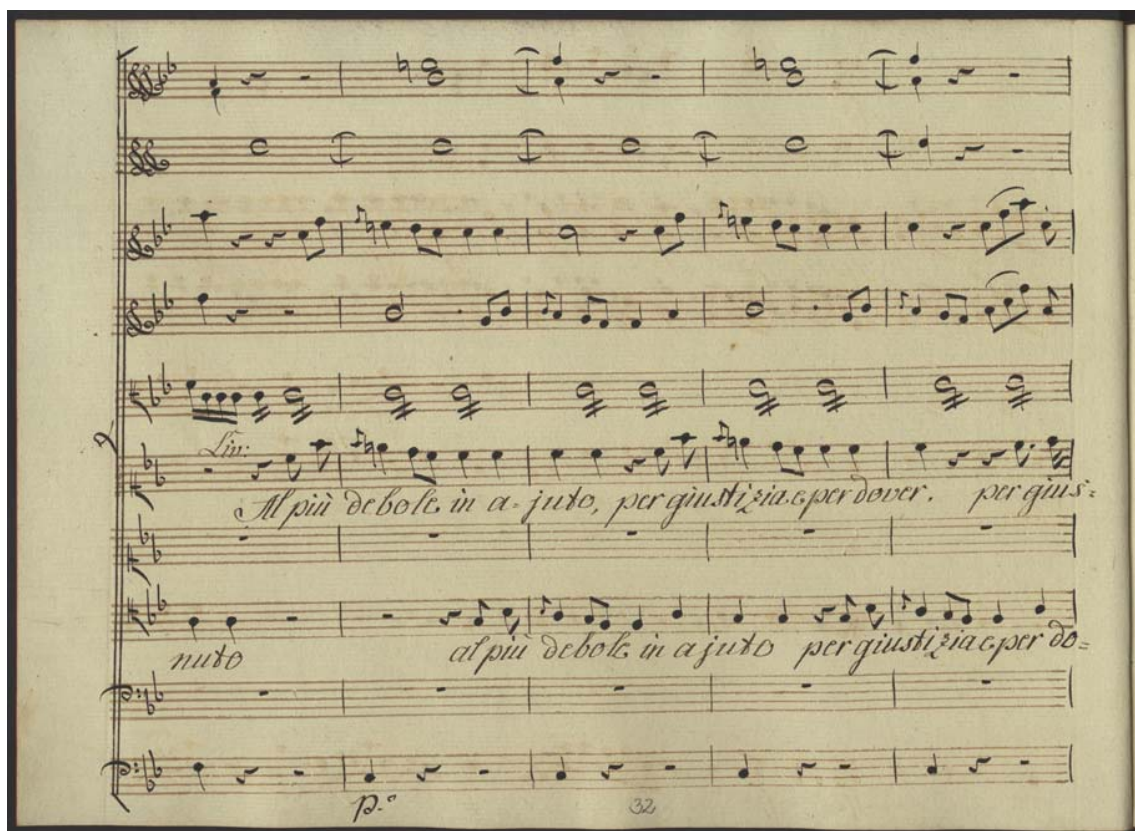 Lin:
Al più debole in a-juto, per giustizia e per dover. per gius=
nuto al più debole in ajuto per giustizia e per do=
p.o
32